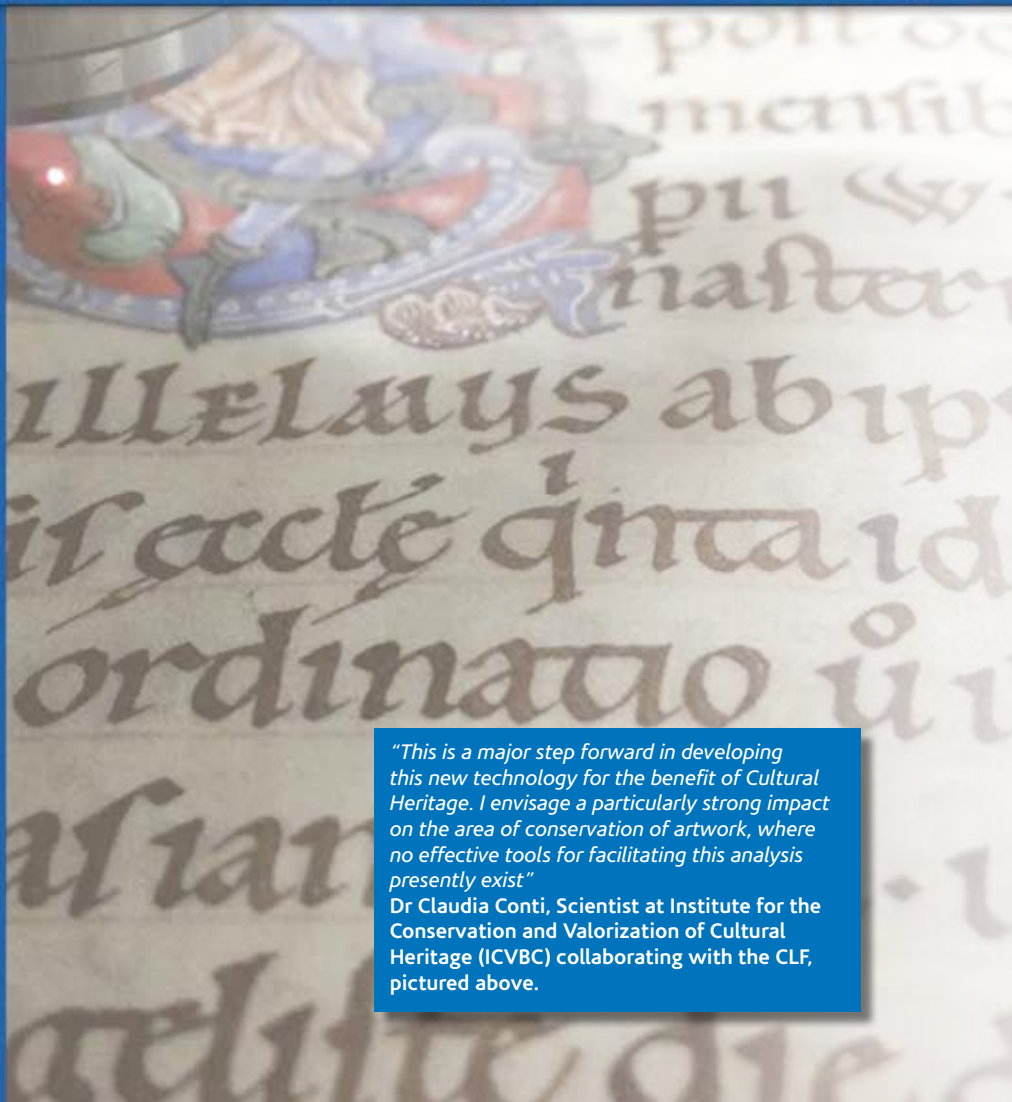 poſt
menſib
pu
naſter
illelmys ab ip
eccłe q̇nta id
ordinatio
aſian
die
“This is a major step forward in developing
this new technology for the benefit of Cultural
Heritage. I envisage a particularly strong impact
on the area of conservation of artwork, where
no effective tools for facilitating this analysis
presently exist”
Dr Claudia Conti, Scientist at Institute for the
Conservation and Valorization of Cultural
Heritage (ICVBC) collaborating with the CLF,
pictured above.